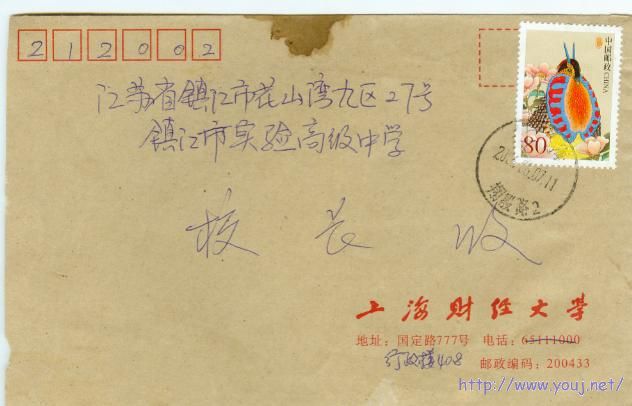 212002
中国邮政 CHINA
80
江苏省镇江市花山湾九区27号
镇江市实验高级中学
校长收
上海财经大学
地址：国定路777号 电话：65111000
行政楼408 邮政编码：200433
http://www.youj.net/